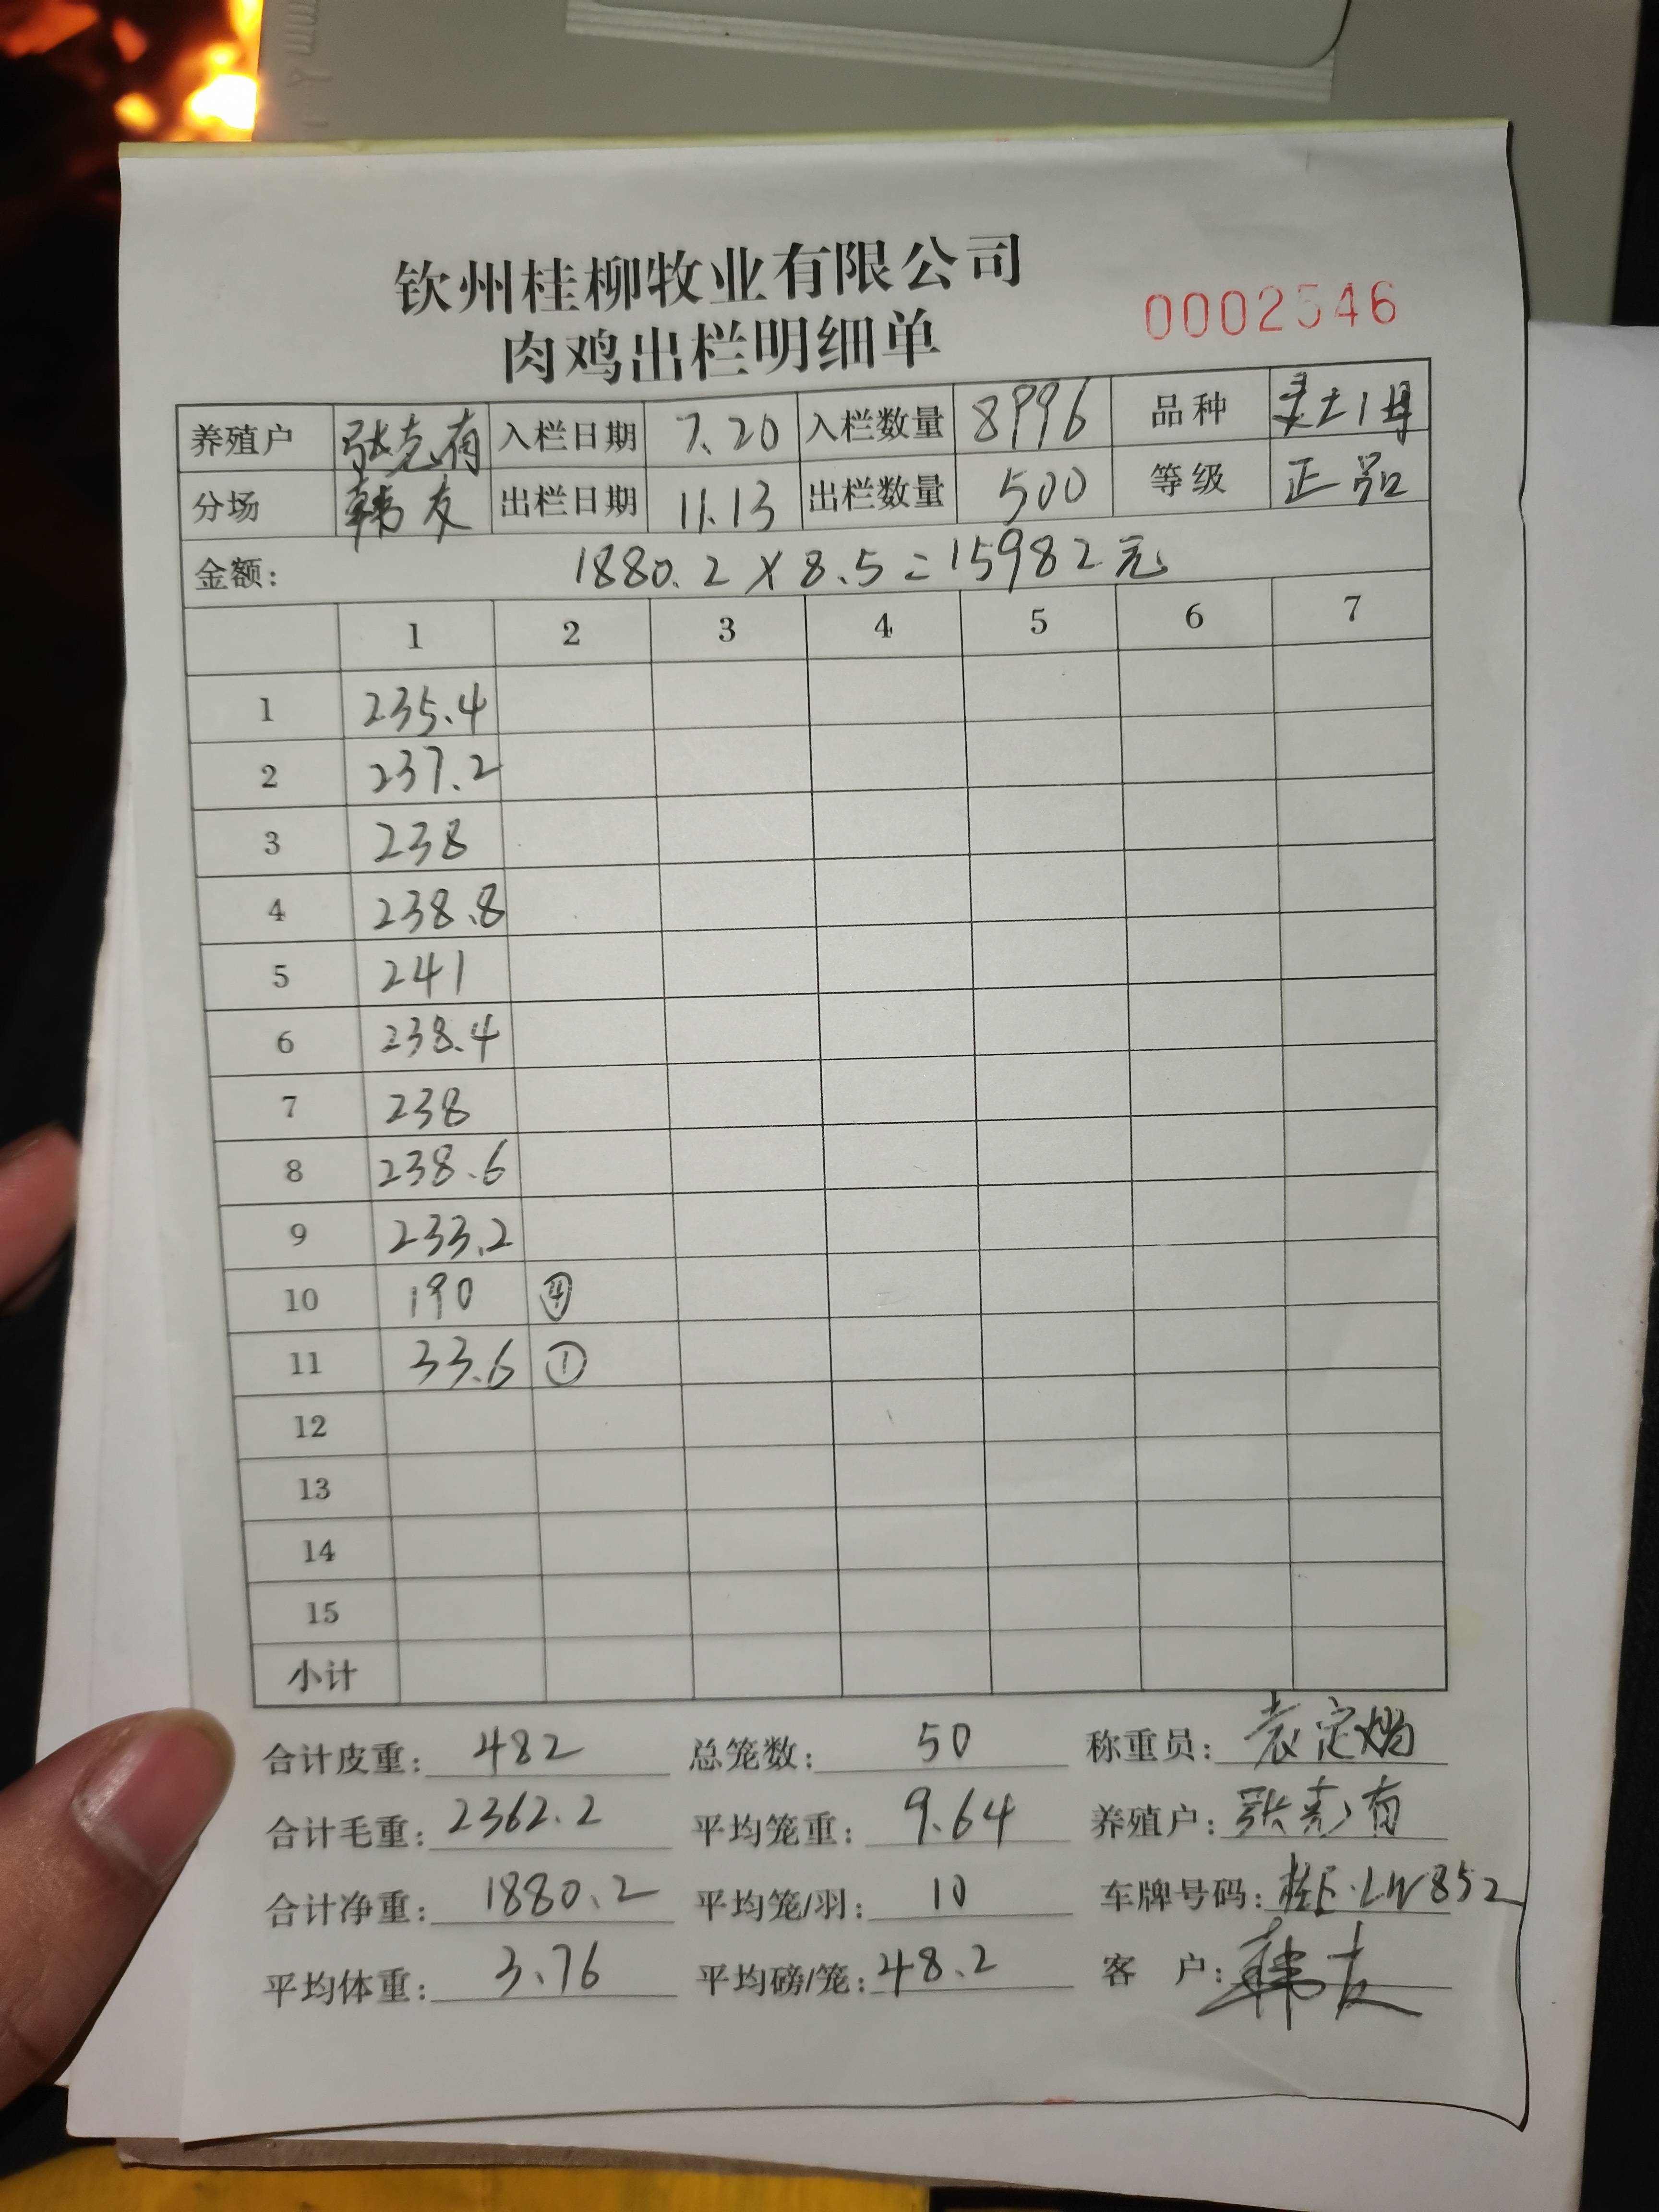 钦州桂柳牧业有限公司
肉鸡出栏明细单
0002546
养殖户 张克有 入栏日期 7.20 入栏数量 8996 品种
分场 韩友 出栏日期 11.13 出栏数量 500 等级 正品
金额: 1880.2×8.5=15982元
1 2 3 4 5 6 7
1 235.4
2 237.2
3 238
4 238.8
5 241
6 238.4
7 238
8 238.6
9 233.2
10 190 ④
11 33.6 ①
12
13
14
15
小计
合计皮重: 482 总笼数: 50 称重员: 袁定
合计毛重: 2362.2 平均笼重: 9.64 养殖户: 张克有
合计净重: 1880.2 平均笼/羽: 10 车牌号码: 桂E·LW852
平均体重: 3.76 平均磅/笼: 48.2 客户: 韩友